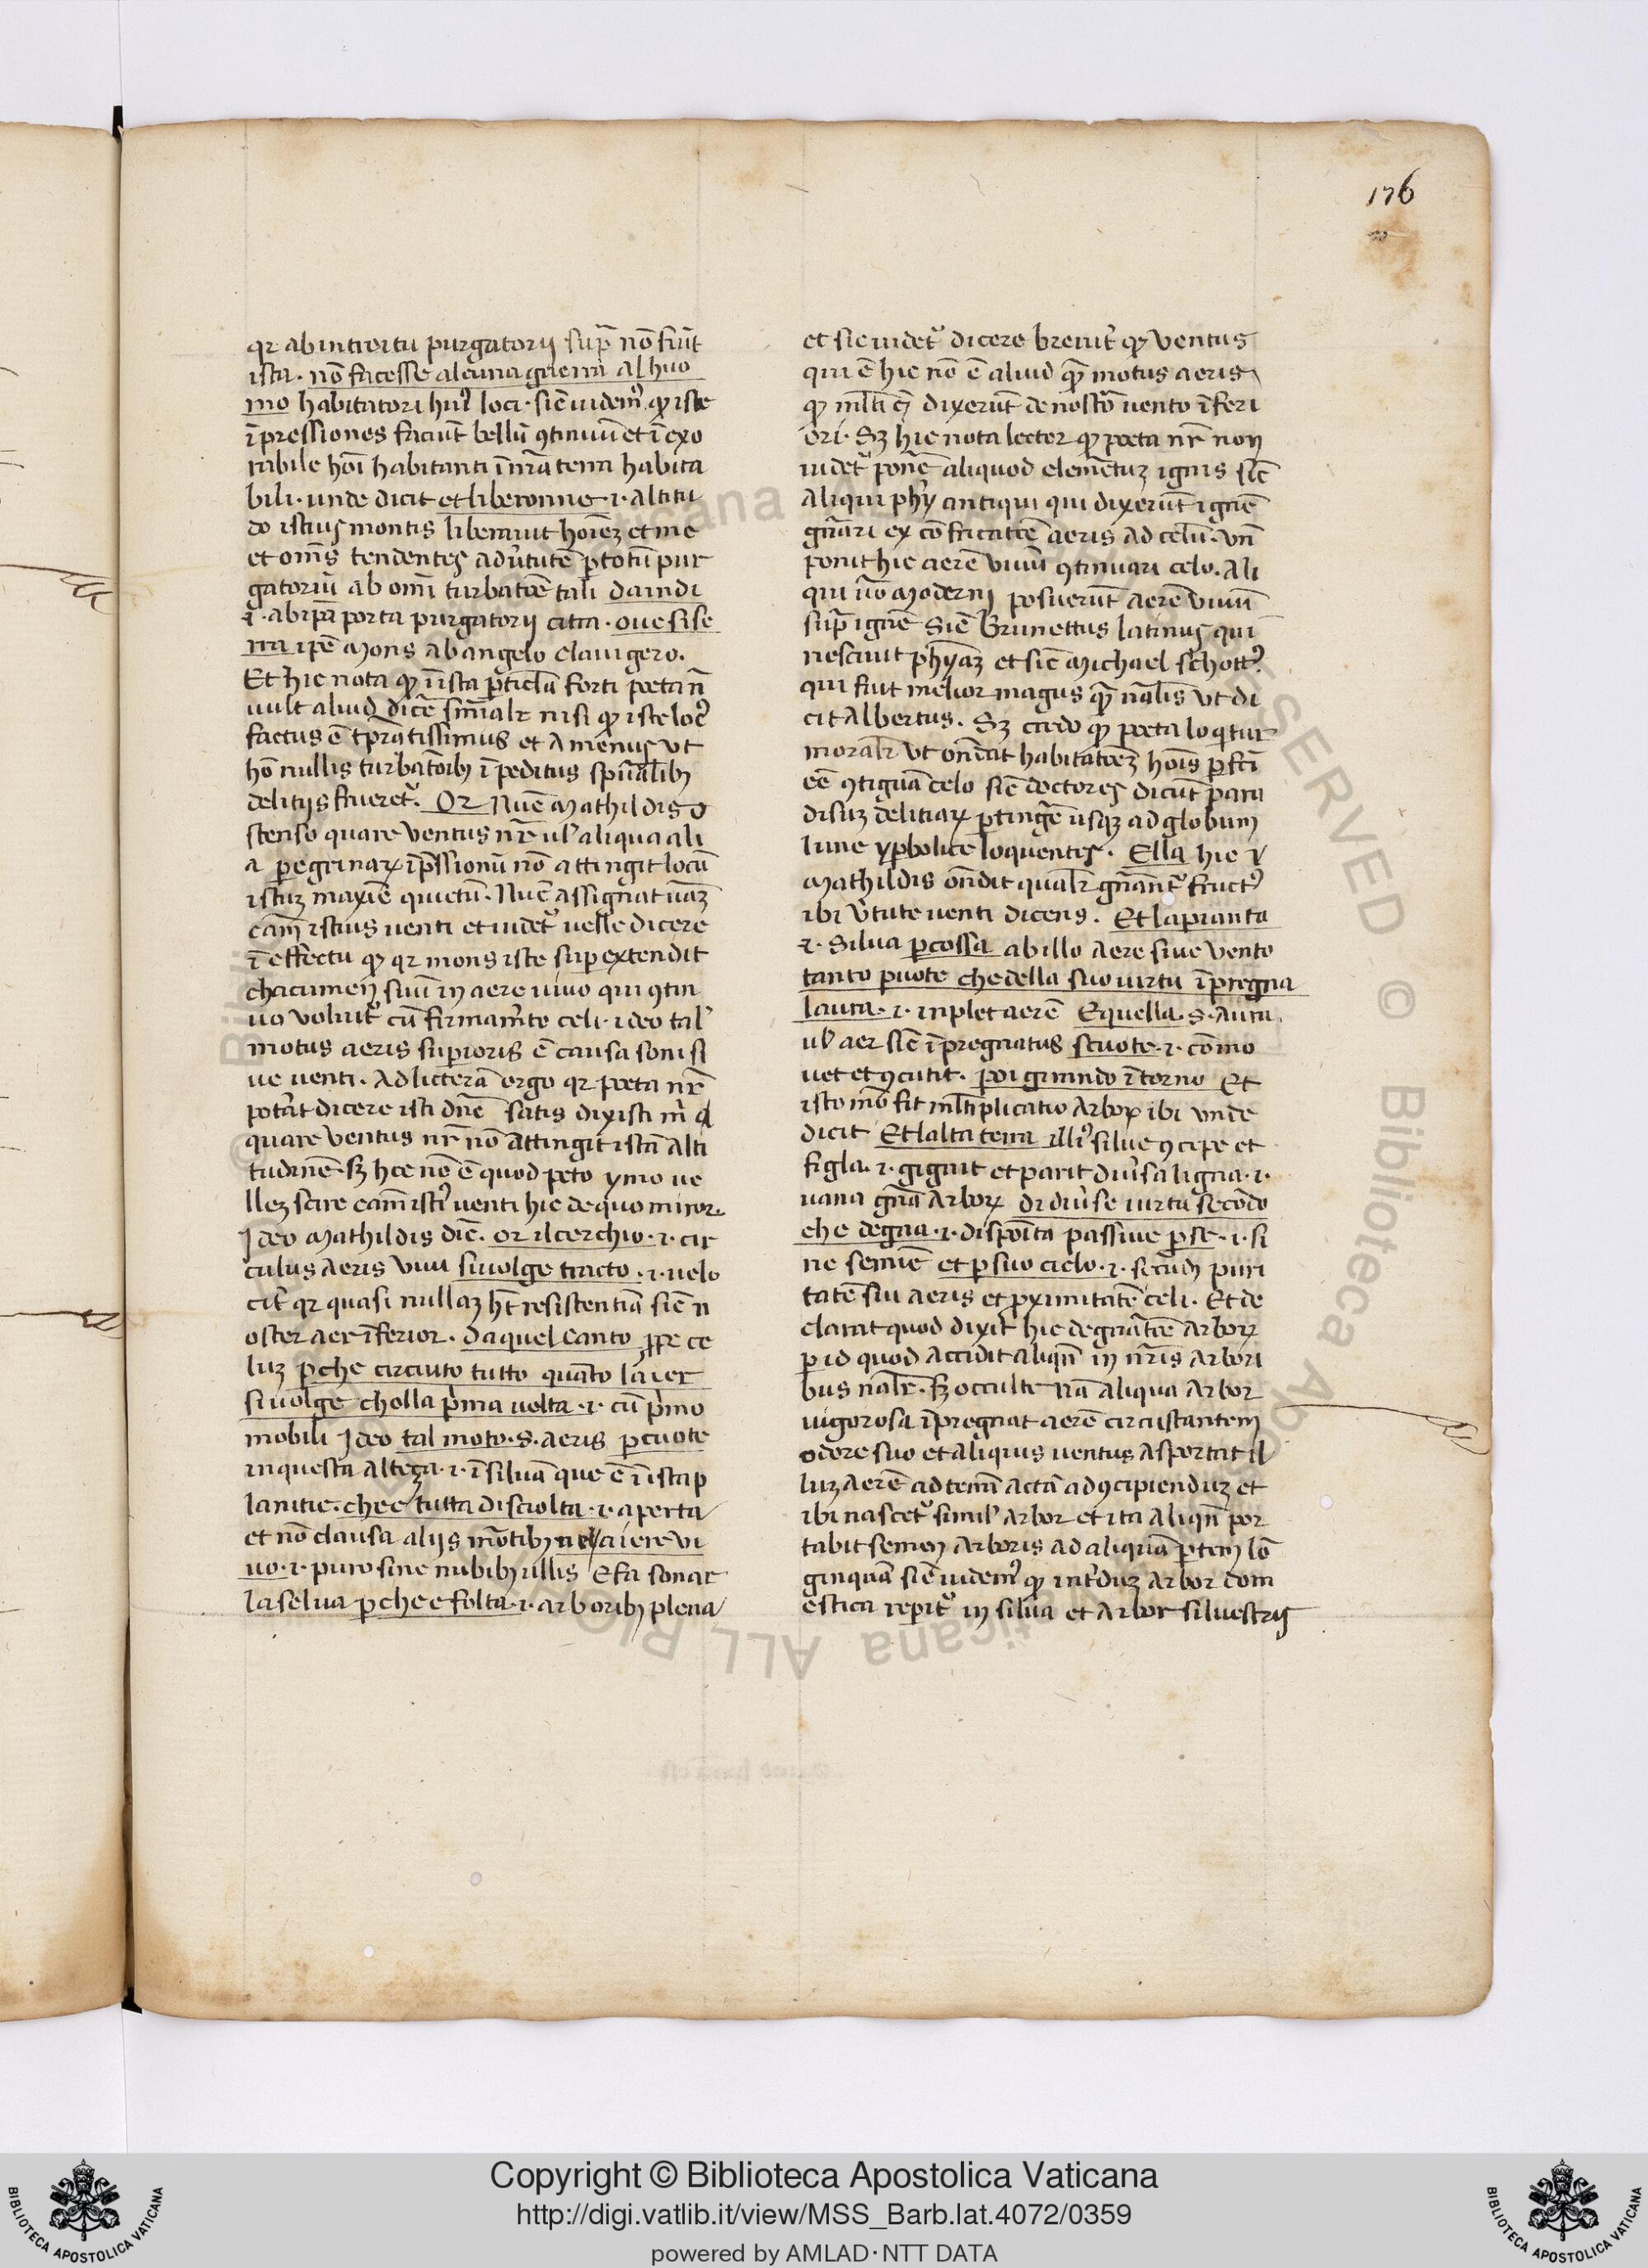 176
qr ab introitu purgatorij sup̄ nō fiūt
ista · nō facesse alcuna guerra al huo
mo habitatori huiꝰ loci · sic̄ uidemꝰ qđ iste
īpressiones faciūt bellū ꝯtinuū et īexo
rabile hoī habitanti ī nr̄a terra habita
bili · unde dicit et liberonne · i · altitu
do istius montis liberauit hoīeꝫ et me
et om̄s tendentes ad ūtutē ꝑ totū pur
gatoriū ab om̄i turbatōe tali da indi
i · ab ip̄a porta purgatorij citra · oue si se
rra ip̄e mons ab angelo clauigero .
Et hic nota qđ ī ista ꝑticl̄a forti poeta n̄
uult aliud dic̄e finalr̄ nisi qđ iste locꝰ
factus ē tꝑatissimus et amenus ut
hō nullis turbatōibꝫ īpeditus spūalibꝫ
delitijs frueretᷣ . Or Nūc Mathildis o
stenso quare uentus nr̄ ul̓ aliqua ali
a peregrinaꝝ īpressionū nō attingit locū
istuꝫ maxīe quietū . Nūc assignat uām
cām istius uenti et uidetᷣ uelle dicere
ī effectu qđ qr mons iste sup extendit
chacumen̄ suū in aere uiuo qui ꝯtin
uo uoluitᷣ cū firmam̄to celi · ideo tal̓
motus aeris superioris ē causa soni si
ue uenti . Ad licterā ergo qr poeta nr̄
potāt dicere isti dn̄e satis dixisti m̄ q̄
quare uentus nr̄ nō attingit istā alti
tudinē · sꝫ hoc nō ē quod peto ymo ue
lleꝫ scire cām istiꝰ uenti hic de quo miror .
Ideo Mathildis dic̄ . or il cerchio · i · cir
culus aeris uiui si uolge tracto · i · uelo
cit̄ qr quasi nullaꝫ hꝫ resistentiā sic̄ n
oster aer īferior . da quel canto ꝓpe ce
luꝫ perche circuito tutto quāto laier
si uolge cholla prima uolta · i · cū primo
mobili Ideo tal moto · s · aeris percuote
in questa alteça · i · ī siluā que ē ī ista p
lanitie . che e tutta disciolta · i · aperta
et nō clausa alijs mōtibꝫ nel aiere ui
uo · i · puro sine nubibꝫ illis E fa sonar
la selua perche e folta · i · arboribꝫ plena
et sic uidetᷣ dicere breuit̄ qđ uentus
qui ē hic nō ē aliud qm̄ motus aeris
qđ ml̄ti eī dixerūt de nostro uento īferi
ori . Sꝫ hic nota lector qđ poeta nr̄ non
uidetᷣ ponē aliquod elementuꝫ ignis sic̄
aliqui phȳ antiqui qui dixerūt ignē
gn̄ari ex confricatōe aeris ad celū · vn̄
ponit hic aerē uiuū ꝯtinuari celo . Ali
qui uō moderni posuerūt aerē uiuū
sup̄ ignē Sic̄ Brunettus latinus qui
nesciuit phȳaꝫ et sic̄ Michael schottꝰ
qui fuit melior magus qm̄ nālis ut di
cit Albertus . Sꝫ credo qđ poeta loquitur
moralr̄ ut ondāt habitatōeꝫ hoīs ꝑfcī
eē ꝯtiguā celo sic̄ doctores dicūt para
disuꝫ delitiaꝝ ꝑtingē usqꝫ ad globum
lune yperbolice loquentes . Ella hic ·
Mathildis ondit qualr̄ gn̄antᷣ fructꝰ
ibi ūtute uenti dicens . Et la pianta
i · silua percossa ab illo aere siue uento
tanto puote che della suo uirtu īpregna
laura · i · inplet aerē Equella · s · aura .
ul̓ aer sic̄ īpregnatus scuote · i · cōmo
uet et ꝯcutit . poi girando ītorno Et
isto mō fit ml̄tiplicatio arboꝝ ibi unde
dicit Et lalta terra illiꝰ silue ꝯcipe et
figla · i · gignit et parit diūsa ligna · i ·
uaria gn̄a arboꝝ di diūse uirtu secōdo
che degna · i · disposita passiue ꝑ se · i · si
ne semīe et per suo cielo · i · secundꝫ puri
tatē sui aeris et ꝓximitatē celi . Et de
clarat quod dixit hic de gn̄atōe arboꝝ
per id quod accidit aliqn̄ in nr̄is arbori
bus nālr̄ . sꝫ occulte nā aliqua arbor
uigorosa īpregnat aerē circustantem
odore suo et aliquis uentus asportat il
luꝫ aerē ad terrā actā ad ꝯcipienduꝫ et
ibi nascetᷣ simil̓ arbor et ita aliqn̄ por
tabit semen arboris ad aliquā ꝑtem lō
ginquā sic̄ uidemꝰ qđ int̄duꝫ arbor dom
estica reperitᷣ in silua et arbor siluestris
Copyright © Biblioteca Apostolica Vaticana
http://digi.vatlib.it/view/MSS_Barb.lat.4072/0359
powered by AMLAD·NTT DATA
BIBLIOTECA APOSTOLICA VATICANA
BIBLIOTECA APOSTOLICA VATICANA